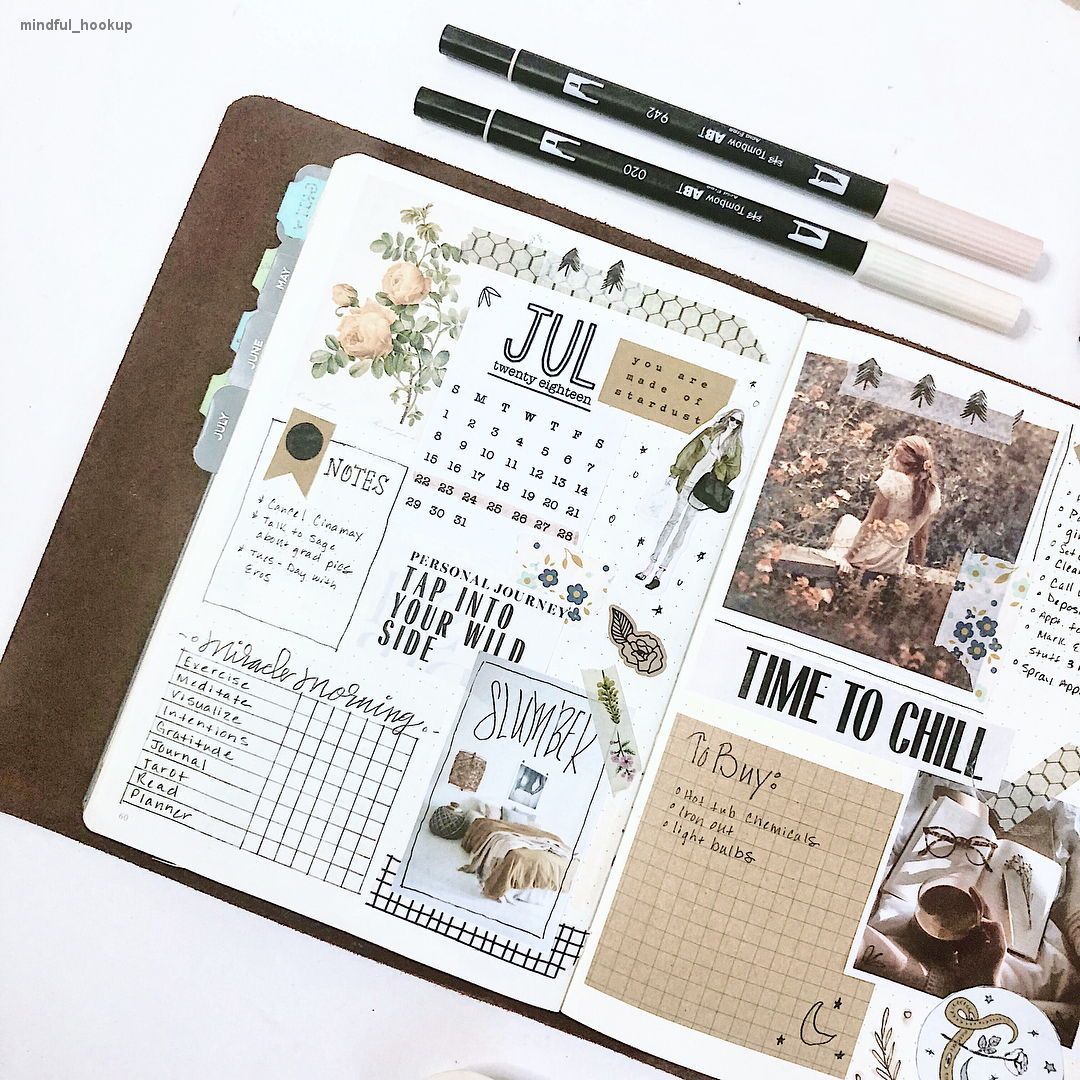 mindful_hookup
942
Tombow ABT
020
Tombow ABT
MAY
JUNE
JULY
JUL
twenty eighteen
S M T W T F S
1 2 3 4 5 6 7
8 9 10 11 12 13 14
15 16 17 18 19 20 21
22 23 24 25 26 27 28
29 30 31
you are
made of
stardust
NOTES
Cancel Cinamax
Talk to Sage
about grad pics
Tues - Day with
Eros
PERSONAL JOURNEY
TAP INTO
YOUR WILD
SIDE
miracle morning
Exercise
Meditate
Visualize
Intentions
Gratitude
Journal
Tarot
Read
Planner
60
SLUMBER
TIME TO CHILL
To Buy:
Hot tub chemicals
Iron out
light bulbs
Call
Appt.
Mark
stuff